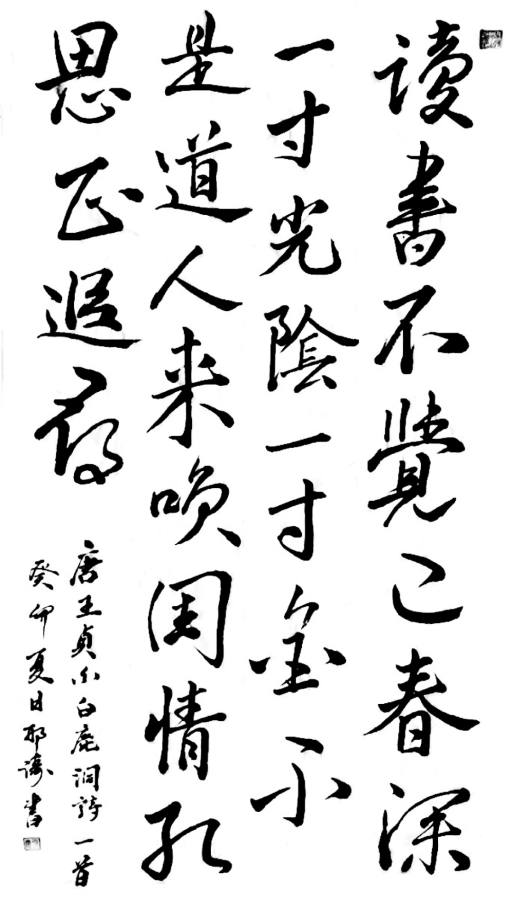 讀書不覺已春深
一寸光陰一寸金不
是道人来唤周情孔
思正追尋
唐王貞白白鹿洞詩一首
癸卯夏日書